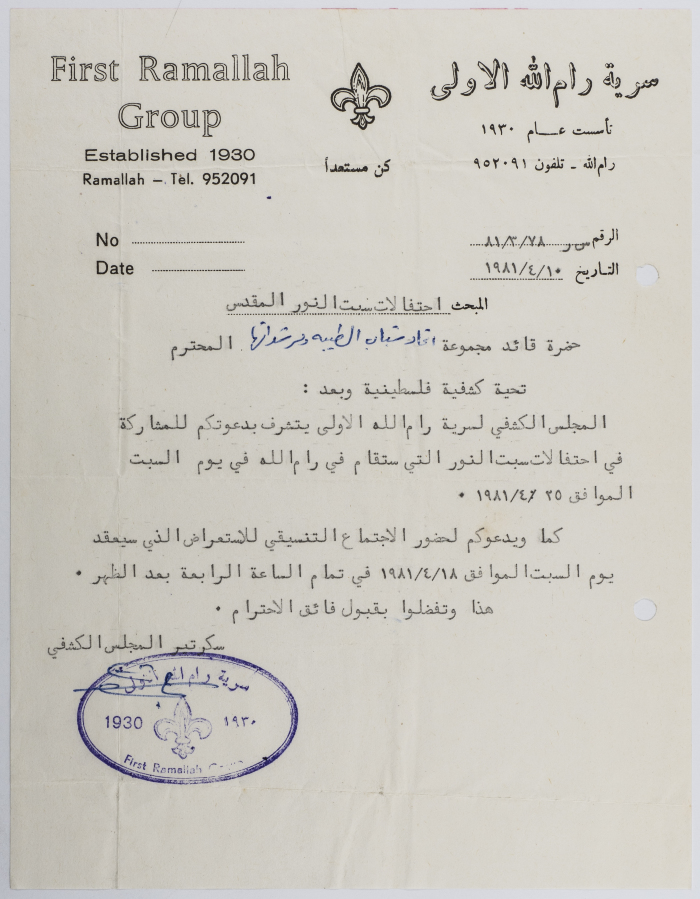 First Ramallah
Group
Established 1930
Ramallah – Tel. 952091
سرية رام الله الاولى
تأسست عـــام ١٩٣٠
رام الله - تلفون ٩٥٢٠٩١
كن مستعداً
No
Date
الرقم س ر ٨١/٣/٧٨
التاريخ ١٩٨١/٤/١٠
المبحث احتفالات سبت النور المقدس
حضرة قائد مجموعة اتحاد شباب الطيبه ومرشداتها المحترم
تحية كشفية فلسطينية وبعد :
المجلس الكشفي لسرية رام الله الاولى يتشرف بدعوتكم للمشاركة
في احتفالات سبت النور التي ستقام في رام الله في يوم السبت
الموافق ٢٥ /١٩٨١/٤ ٠
كما ويدعوكم لحضور الاجتماع التنسيقي للاستعراض الذي سيعقد
يوم السبت الموافق ١٩٨١/٤/١٨ في تمام الساعة الرابعة بعد الظهر ٠
هذا وتفضلوا بقبول فائق الاحترام ٠
سكرتير المجلس الكشفي
سرية رام الله
1930 ١٩٣٠
First Ramallah Group